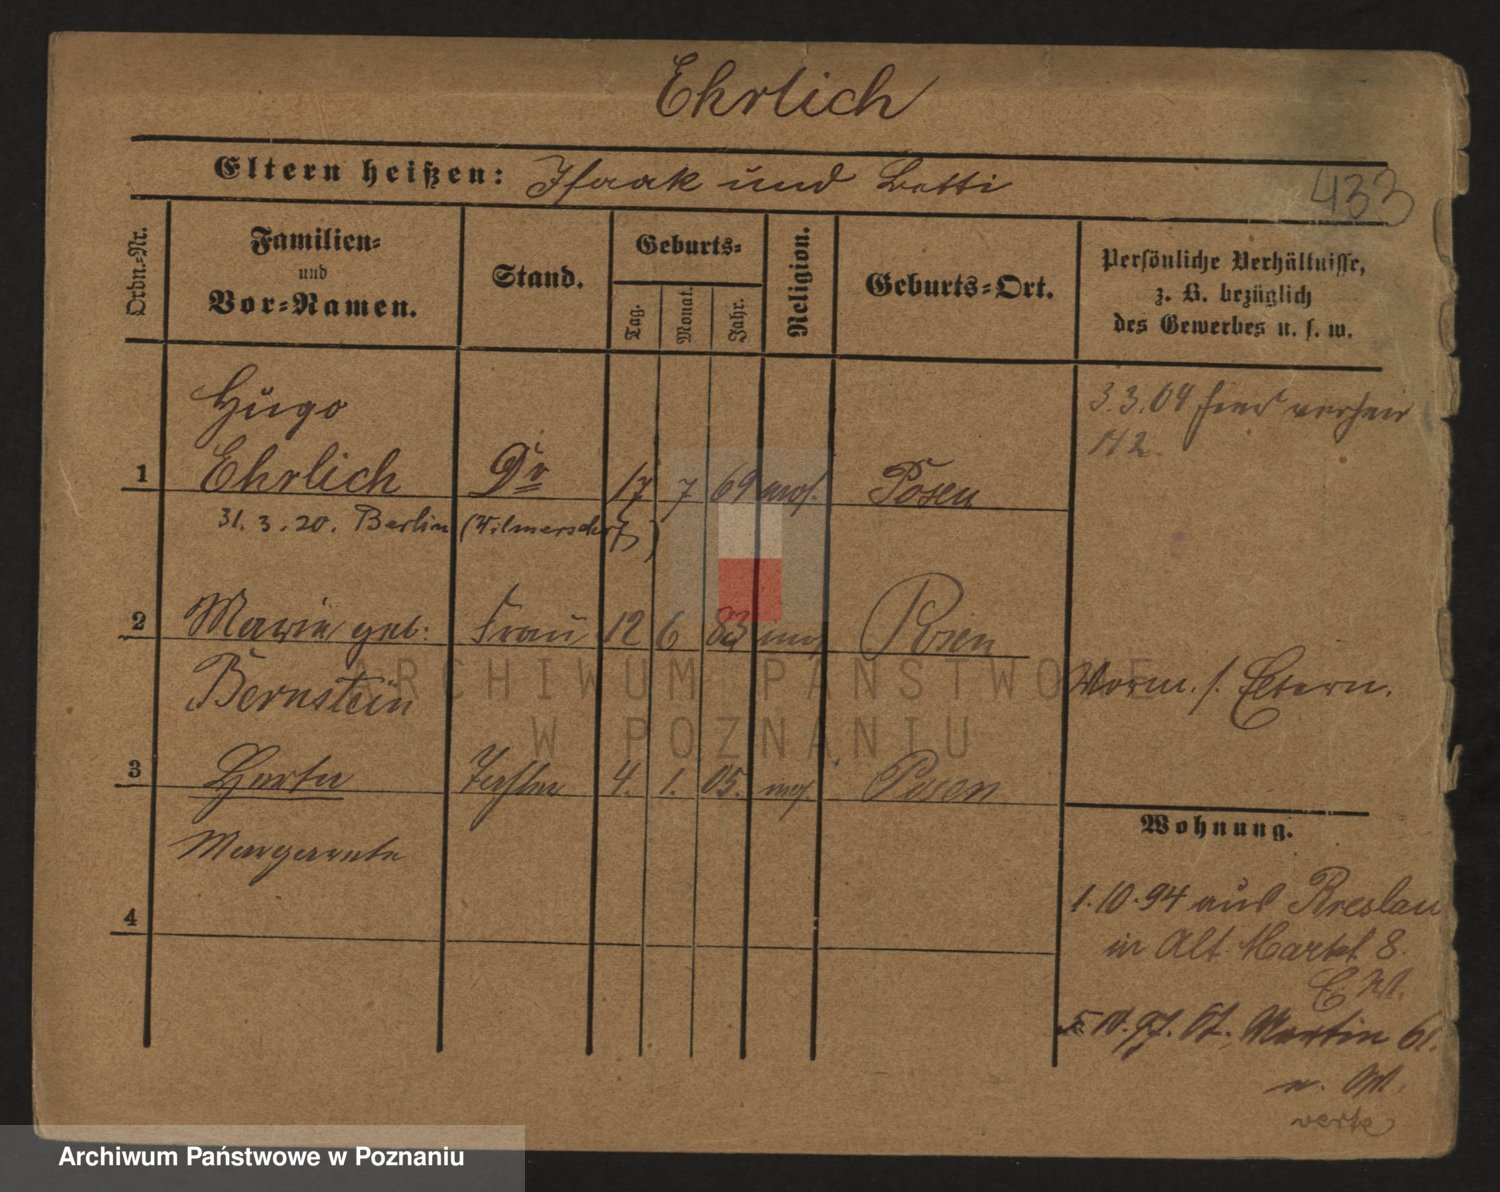 Ehrlich
Eltern heißen: Isaak und Betti
433
Ordn.-Nr.
Familien-
und
Vor-Namen.
Stand.
Geburts-
Tag.
Monat.
Jahr.
Religion.
Geburts-Ort.
Persönliche Verhältnisse,
z. B. bezüglich
des Gewerbes u. s. w.
Hugo
3.3.04 hier
1 Ehrlich Dr 17 7 69 mos. Posen
31.3.20. Berlin (Wilmersdorf)
2 Marie geb. Frau 12 6 83 mos Posen
Bernstein
Vorm. s. Eltern.
3 Herta Tochter 4. 1. 05. mos. Posen
Margarete
4
Wohnung.
1.10.94 aus Breslau
in Alt Markt 8.
5.10.97. St. Martin 61.
verte
ARCHIWUM PAŃSTWOWE
W POZNANIU
Archiwum Państwowe w Poznaniu